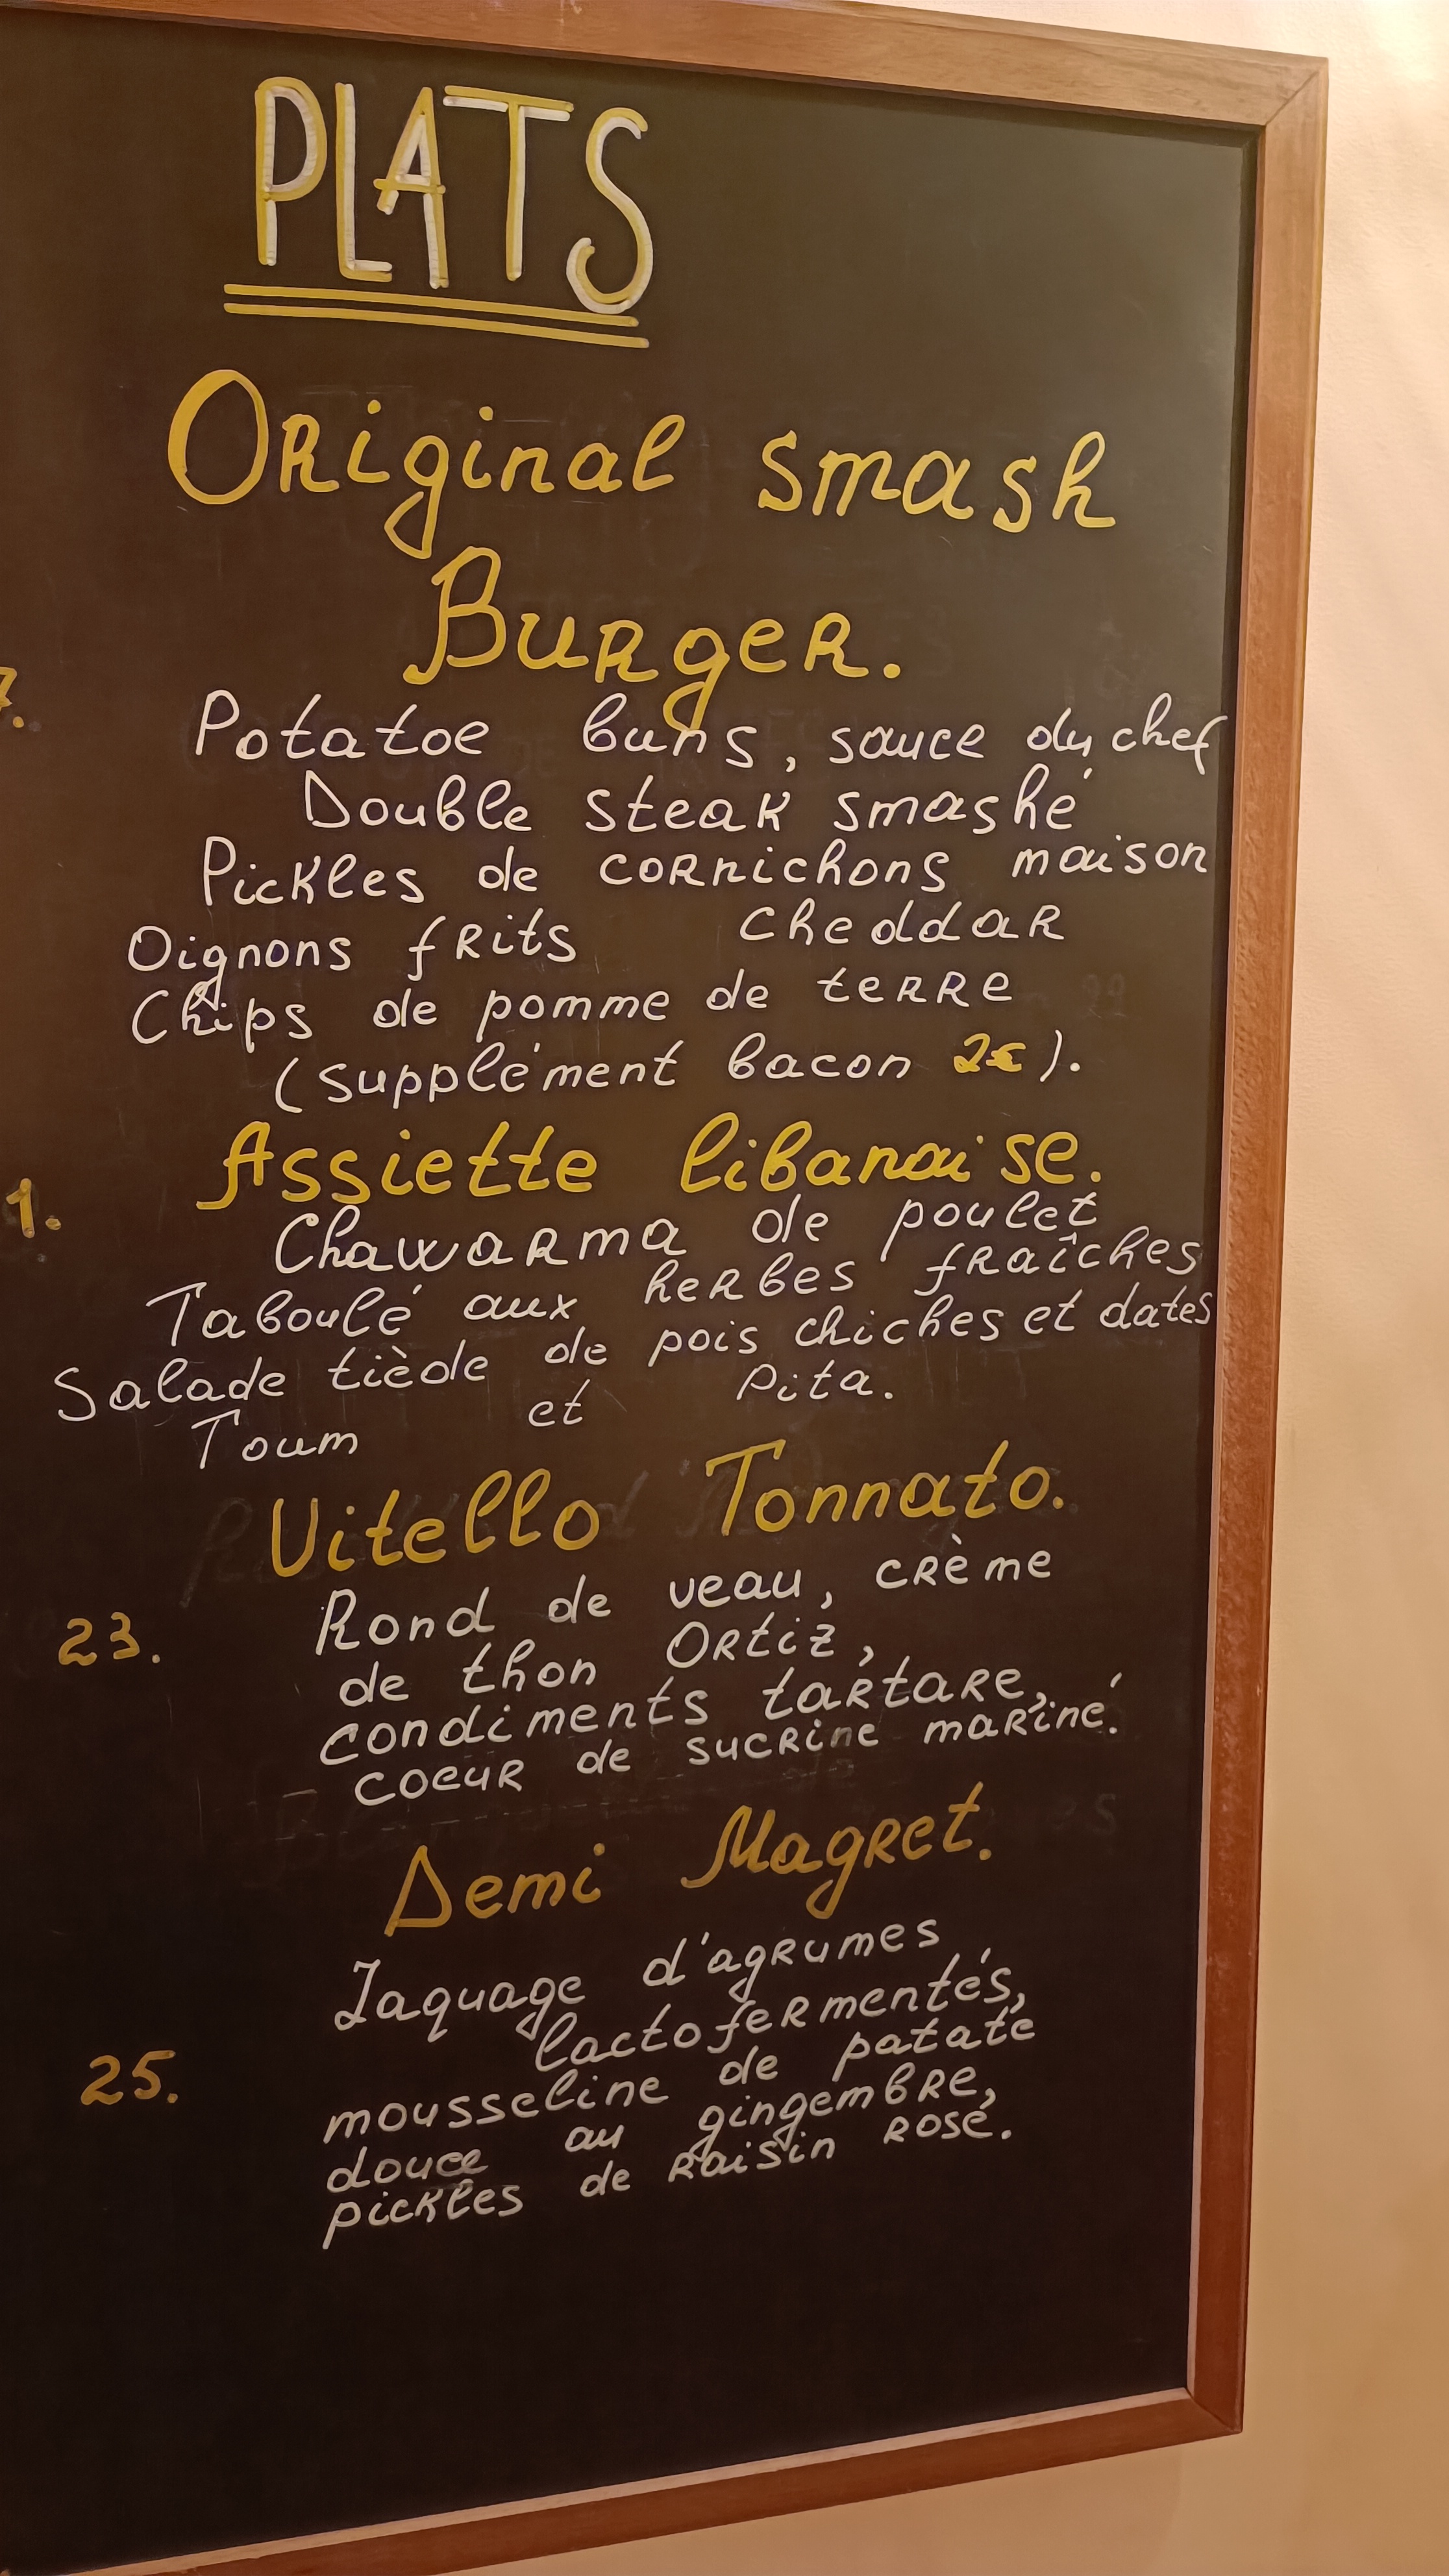 PLATS
Original smash
Burger.
7.
Potatoe buns, sauce du chef
Double steak smashé
Pickles de cornichons maison
Oignons frits cheddar
Chips de pomme de terre
(supplément bacon 2€).
Assiette libanaise.
1.
Chawarma de poulet
Taboulé aux herbes fraîches
Salade tiède de pois chiches et dates
Toum et Pita.
Vitello Tonnato.
23.
Rond de veau, crème
de thon Ortiz,
condiments tartare,
coeur de sucrine mariné.
Demi Magret.
Laquage d'agrumes
lactofermentés,
25.
mousseline de patate
douce au gingembre,
pickles de raisin rosé.